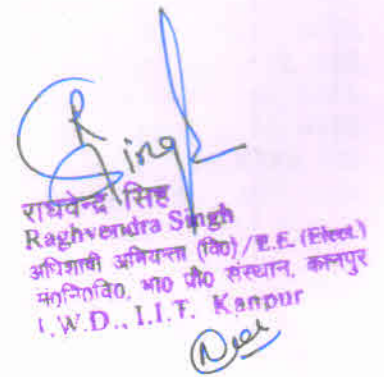 Singh
राघवेन्द्र सिंह
Raghvendra Singh
अधिशाषी अभियन्ता (वि०)/E.E. (Elect.)
सं०नि०वि०, भा० प्रौ० संस्थान, कानपुर
I.W.D., I.I.T. Kanpur